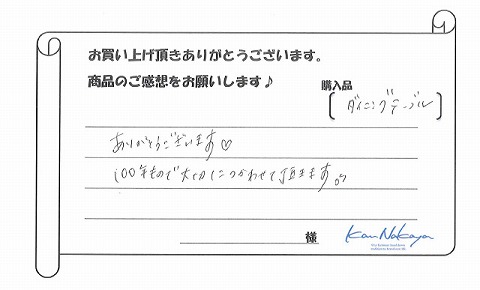 お買い上げ頂きありがとうございます。
商品のご感想をお願いします♪
購入品
[ ダイニングテーブル ]
ありがとうございます♡
100年もので大切につかわせて頂きます。
様
Kan Nakaya